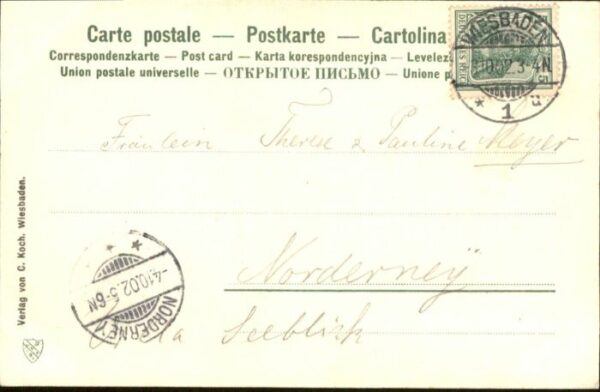 Carte postale — Postkarte — Cartolina
Correspondenzkarte — Post card — Karta korespondencyjna — Levelez
Union postale universelle — ОТКРЫТОЕ ПИСЬМО — Unione p
WIESBADEN
10.02.3-4N
* 1 u
Fräulein Therese & Pauline Meyer
Norderney
Seeblick
NORDERNEY
-4.10.02.5-6N
Verlag von C. Koch. Wiesbaden.